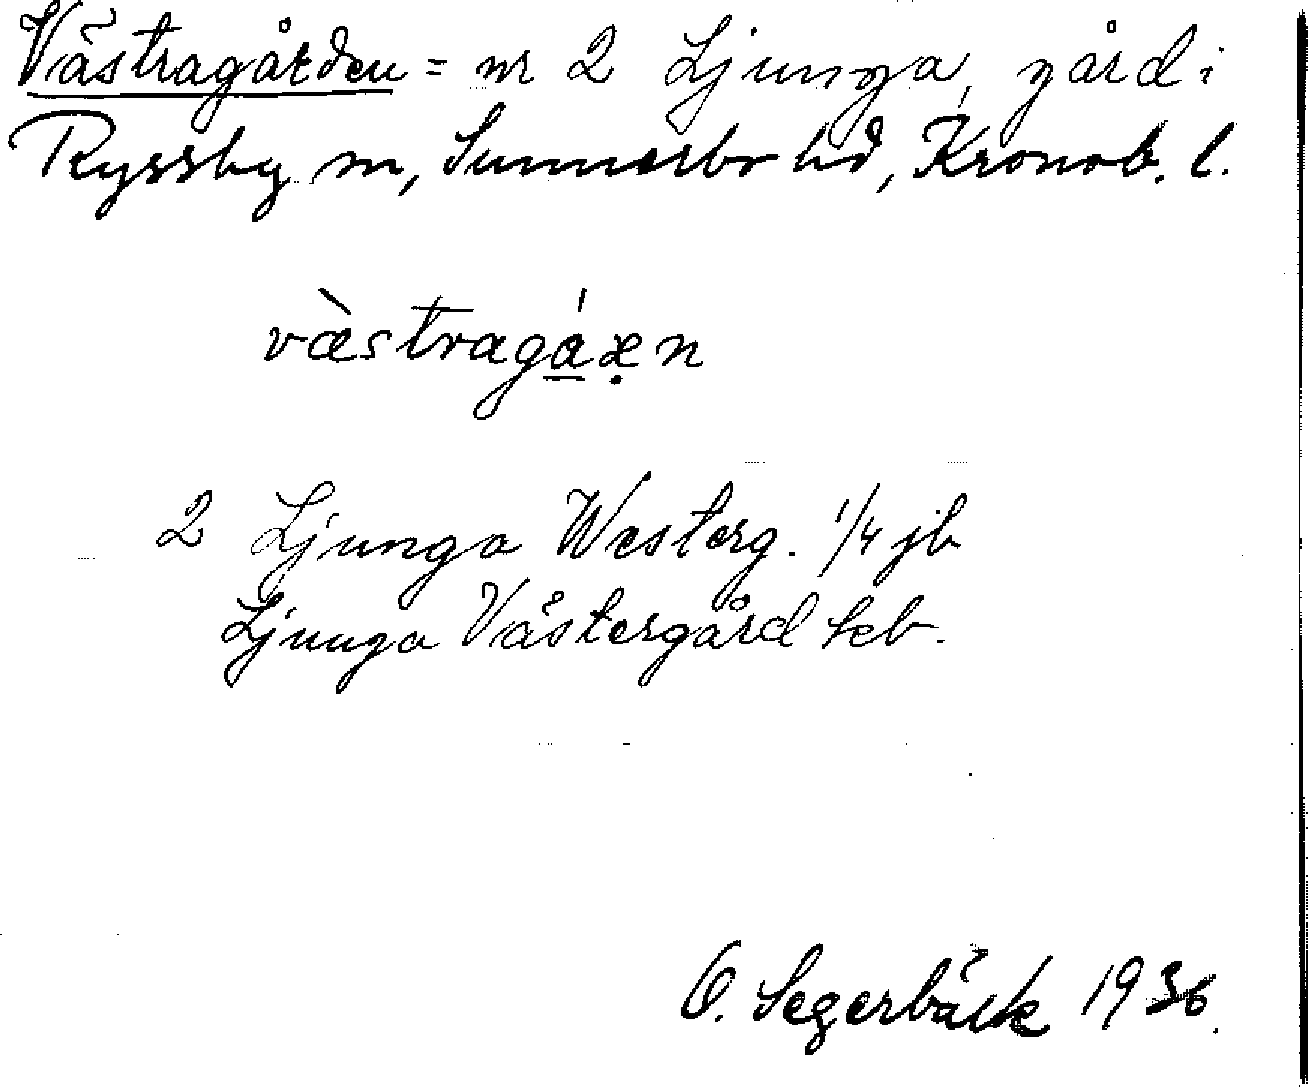 Västragården = nr 2 Ljunga, gård i
Ryssby sn, Sunnerbo hd, Kronob. l.
västragáæ̣n
2 Ljunga Westerg. 1/4 jb
Ljunga Västergård
O. Segerbäck 1936.